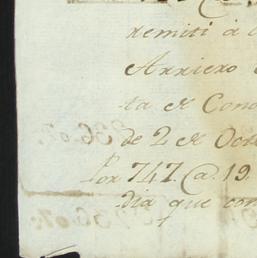 remiti à
Arriero
ta de Cono
de 2 de Oct
Por 747. @. 19.
dia que con